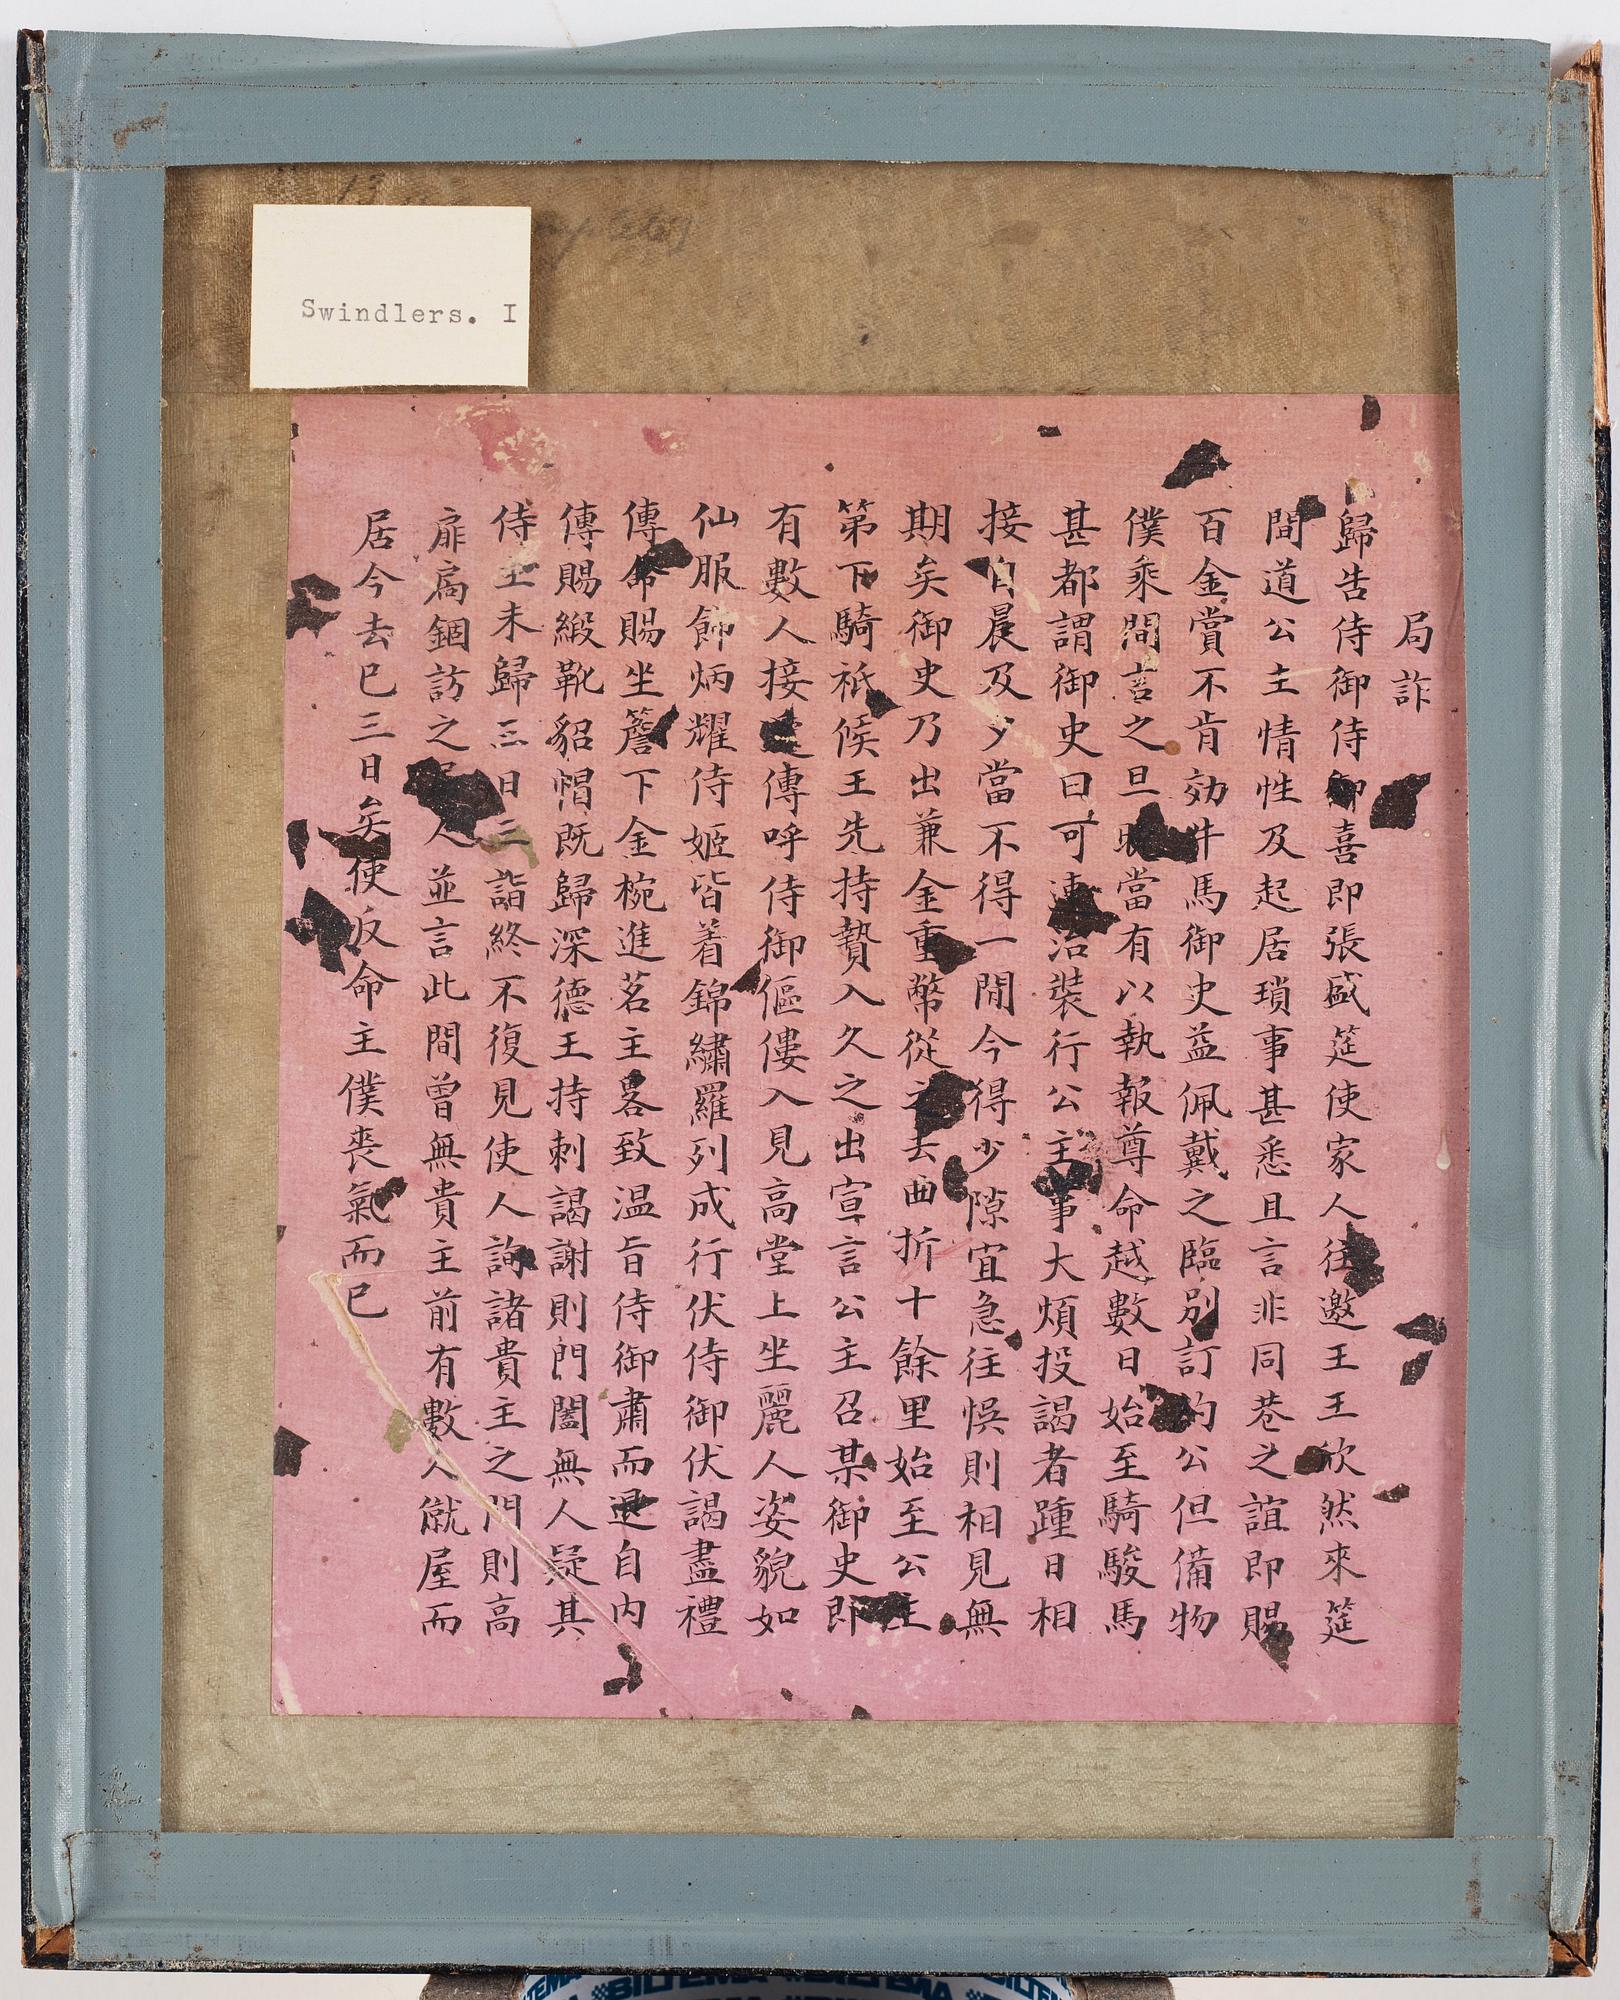 Swindlers. I
局詐
歸告侍御侍御喜即張盛筵使家人往邀王王欣然來筵
間道公主情性及起居瑣事甚悉且言非同巷之誼即賜
百金賞不肯効牛馬御史益佩戴之臨別訂約公但備物
僕乘間言之旦晚當有以執報尊命越數日始至騎駿馬
甚都謂御史曰可速治裝行公主事大煩投謁者踵日相
接自晨及夕當不得一間今得少隙宜急往悞則相見無
期矣御史乃出兼金重幣從之去曲折十餘里始至公主
第下騎祇候王先持贄入久之出宣言公主召某御史即
有數人接遞傳呼侍御傴僂入見高堂上坐麗人姿貌如
仙服飾炳耀侍姬皆着錦繡羅列成行伏侍御伏謁盡禮
傳命賜坐簷下金椀進茗主畧致温旨侍御肅而退自内
傳賜緞靴貂帽既歸深德王持刺謁謝則門闔無人疑其
侍主未歸三日三詣終不復見使人詢諸貴主之門則高
扉扃錮訪之人並言此間曾無貴主前有數人僦屋而
居今去已三日矣使反命主僕喪氣而已
13
BILTEMA